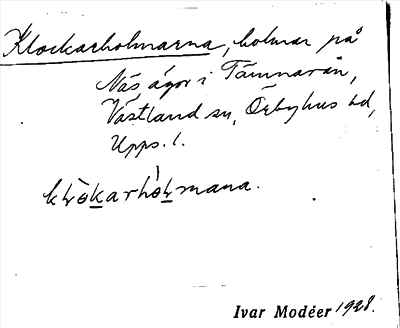 Klockarholmarna, holmar på
Näs ägor i Tämnarån,
Västland sn, Örbyhus hd,
Upps. l.
kɫòkarhòɫmana.
Ivar Modéer 1928.